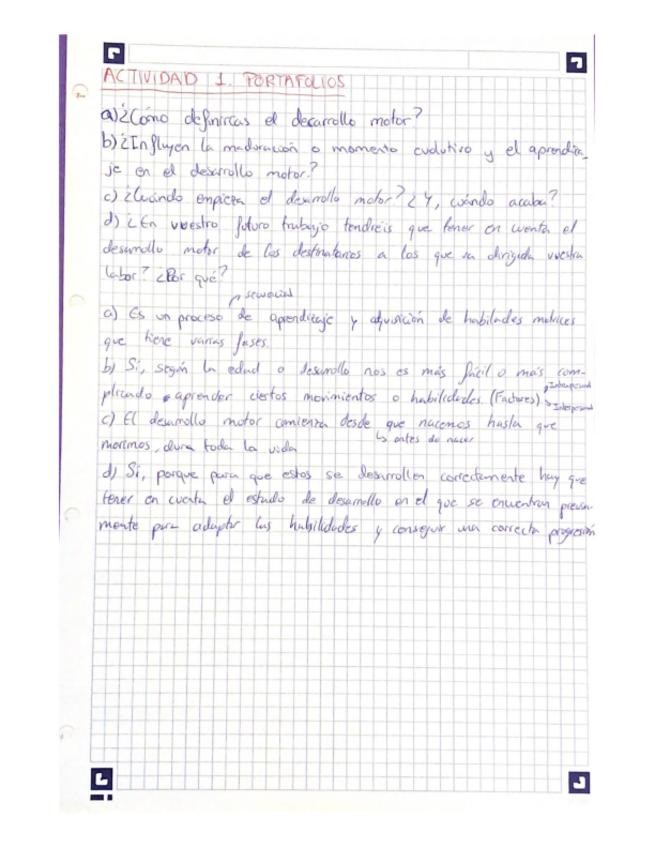 ACTIVIDAD 1. PORTAFOLIOS
a) ¿Cómo definirías el desarrollo motor?
b) ¿Influyen la maduración o momento evolutivo y el aprendiza-
je en el desarrollo motor?
c) ¿Cuándo empieza el desarrollo motor? ¿Y, cuándo acaba?
d) ¿En vuestro futuro trabajo tendréis que tener en cuenta el
desarrollo motor de los destinatarios a los que va dirigida vuestra
labor? ¿Por qué?
secuencial
a) Es un proceso de aprendizaje y adquisición de habilades motrices
que tiene varias fases.
b) Sí, según la edad o desarrollo nos es más fácil o más com-
plicado aprender ciertos movimientos o habilidades. (Factores)
c) El desarrollo motor comienza desde que nacemos hasta que
↳ antes de nacer
morimos, dura toda la vida
d) Sí, porque para que estos se desarrollen correctamente hay que
tener en cuenta el estado de desarrollo en el que se encuentran previa-
mente para adaptar las habilidades y conseguir una correcta progresión